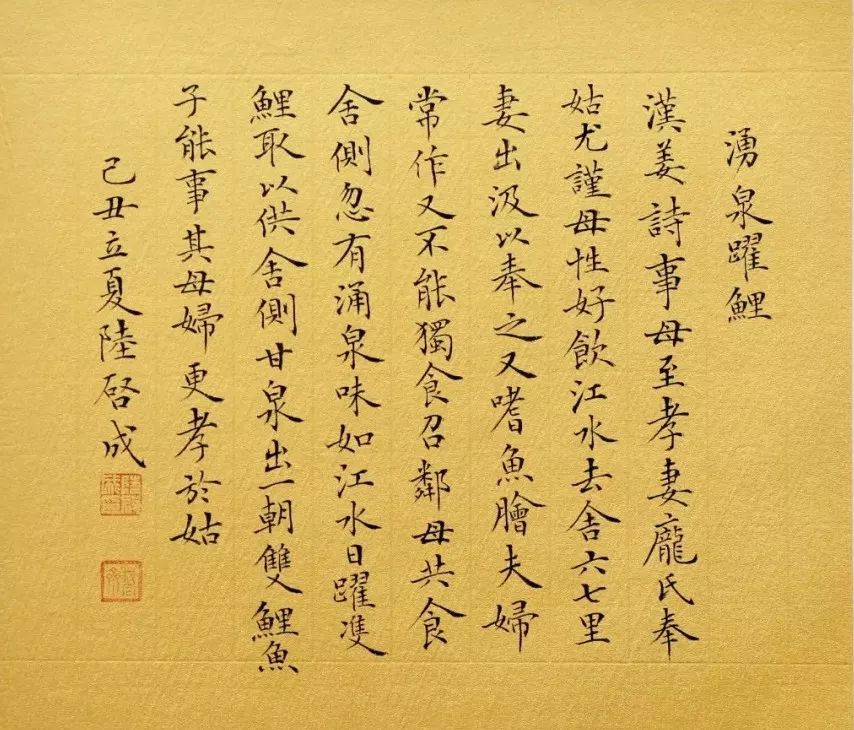 湧泉躍鯉
漢姜詩事母至孝妻龐氏奉
姑尤謹母性好飲江水去舍六七里
妻出汲以奉之又嗜魚膾夫婦
常作又不能獨食召鄰母共食
舍側忽有涌泉味如江水日躍雙
鯉取以供舍側甘泉出一朝雙鯉魚
子能事其母婦更孝於姑
己丑立夏陸啓成